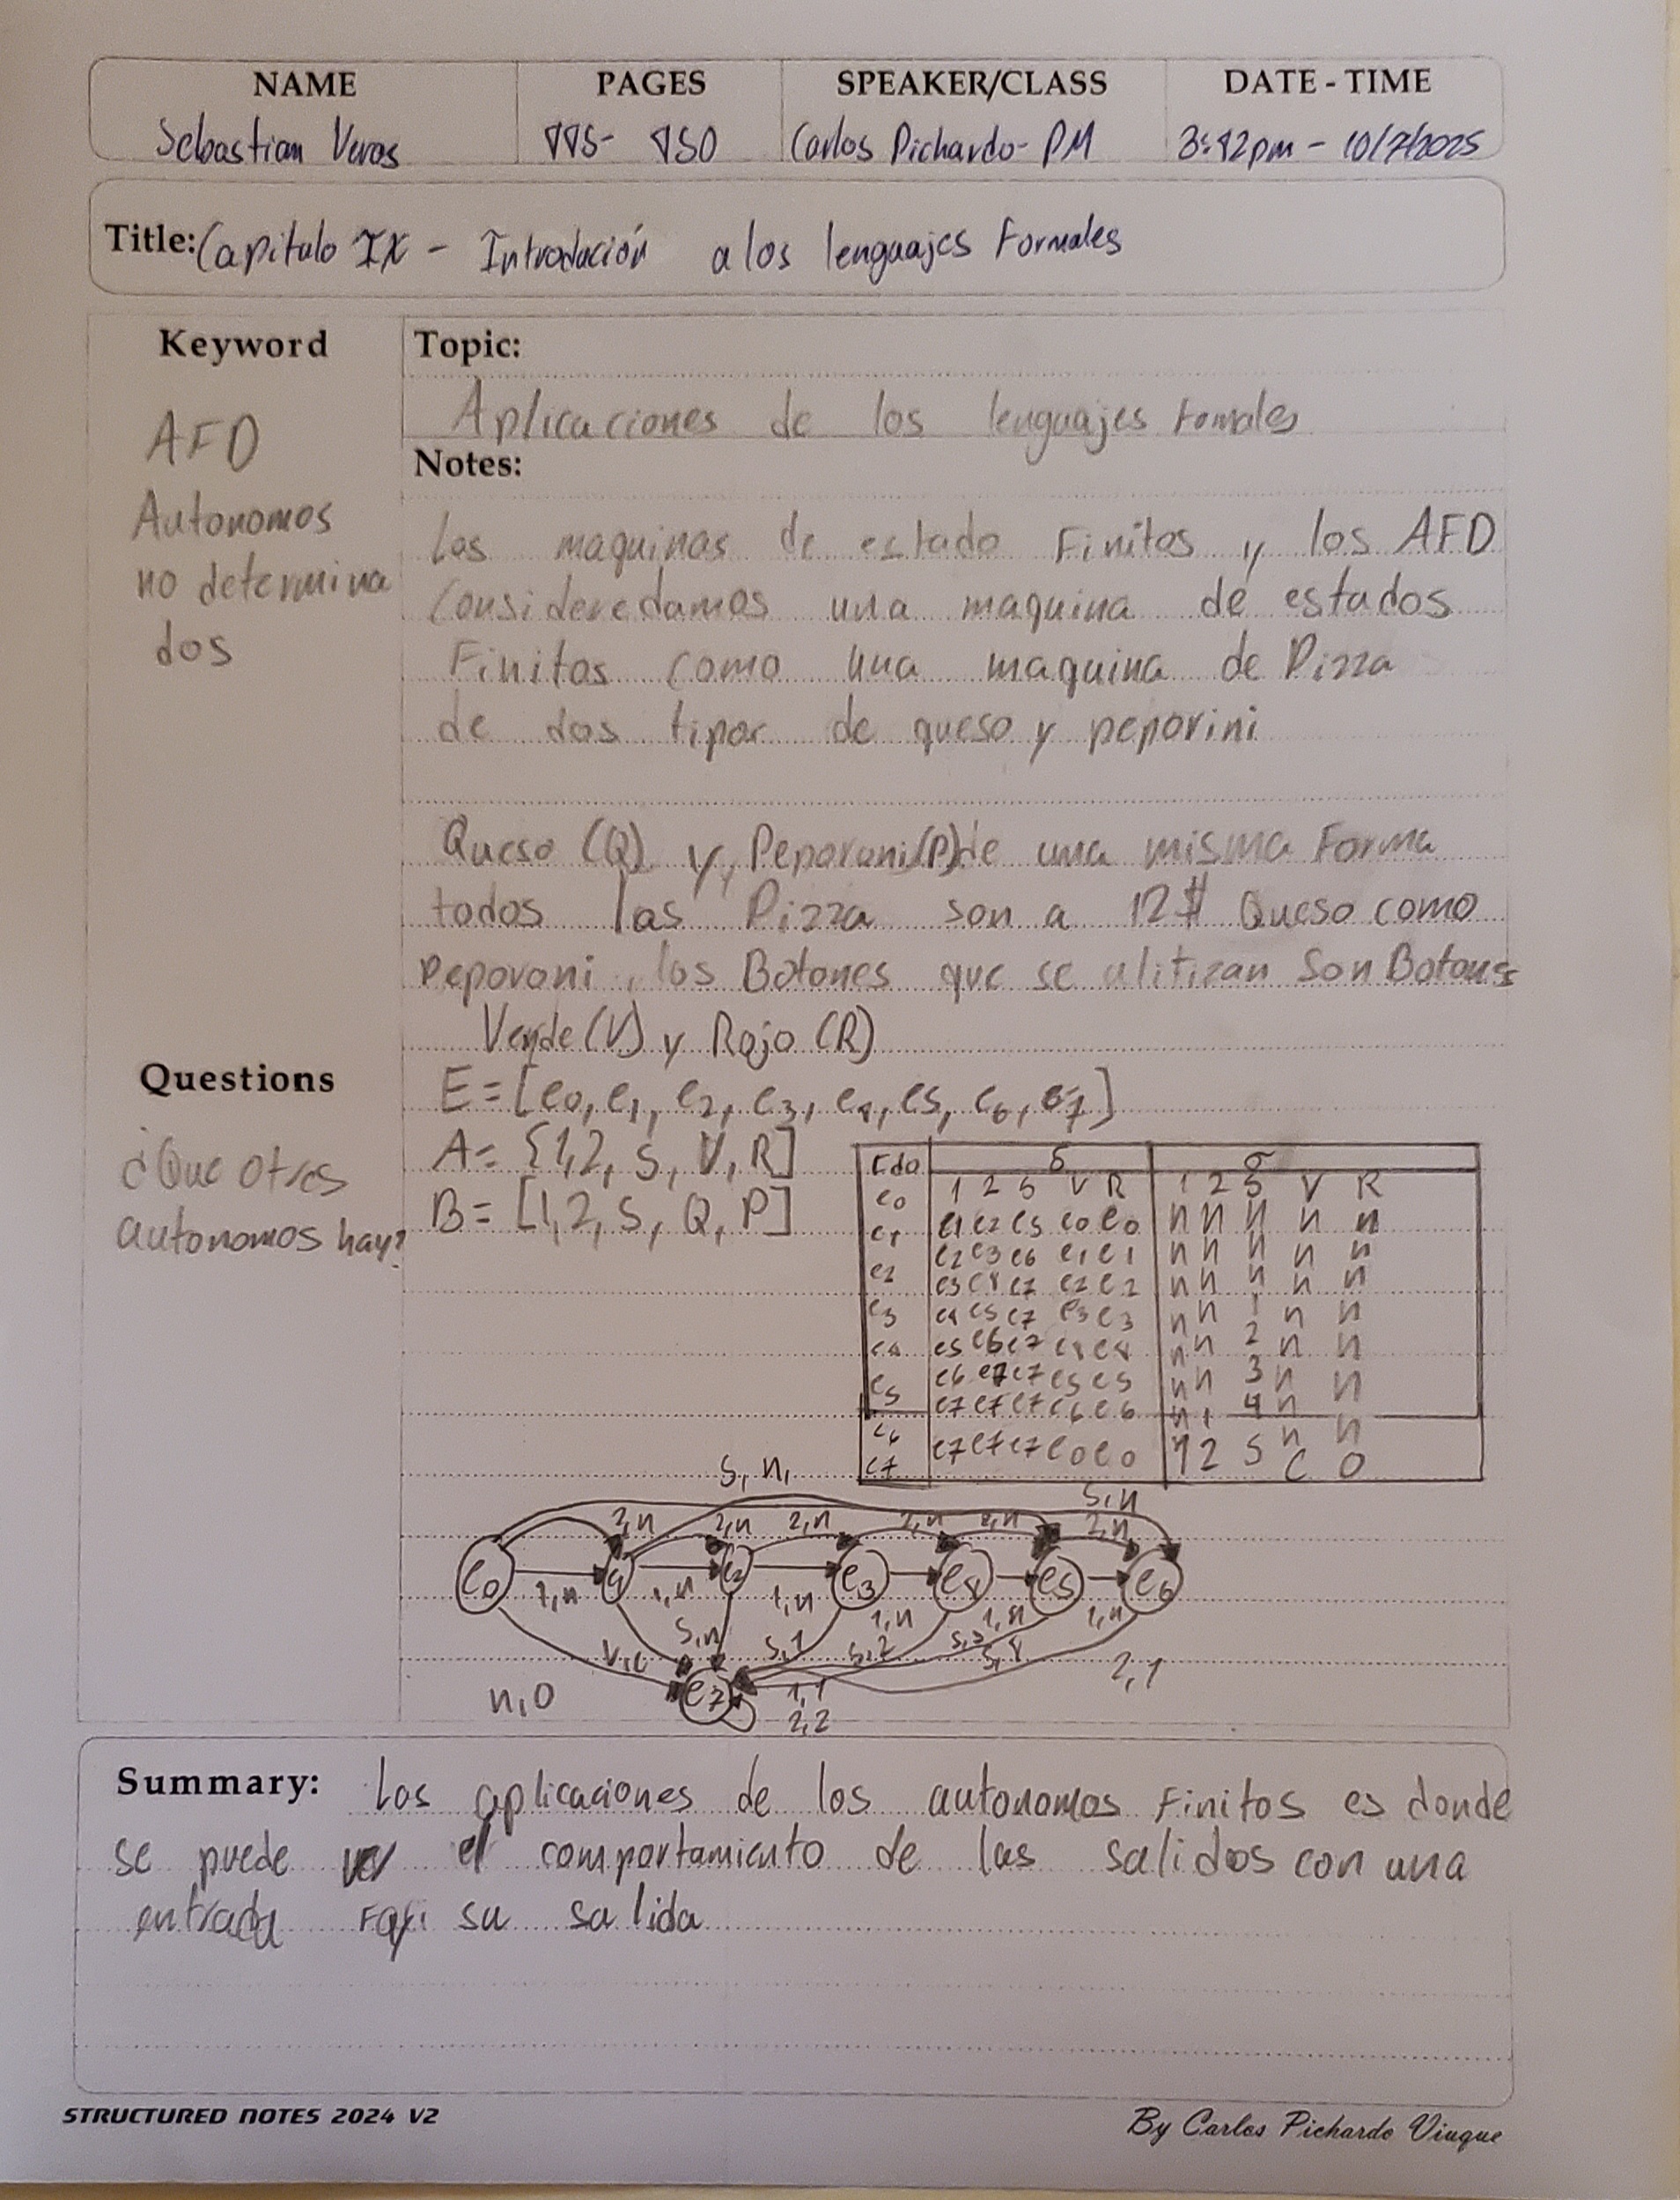 NAME PAGES SPEAKER/CLASS DATE - TIME
Sebastian Veras 445- 450 Carlos Pichardo- PM 3:42pm - 10/7/2025
Title: Capitulo IX - Introdución a los lenguajes Formales
Keyword
AFD
Autonomos
no determina
dos
Topic:
Aplicaciones de los lenguajes Fomales
Notes:
Las maquinas de estado Finitos y los AFD
Consideredamos una maquina de estados
Finitos como una maquina de Pizza
de dos tipos de queso y peporini
Queso (Q) y Peporoni(P) de una misma Forma
todos las Pizza son a 12$ Queso como
peporoni, los Botones que se ulitizan Son Botones
Verde (V) y Rojo (R)
E = [e0, e1, e2, e3, e4, e5, e6, e7]
A = {1,2, 5, V, R]
B = [1,2, 5, Q, P]
Questions
¿Que otros
autonomos hay?
Edo δ σ
e0 1 2 5 V R 1 2 5 V R
e1 e1 e2 e5 e0 e0 n n n n n
e2 e3 e6 e1 e1 n n n n n
e2 e3 e4 e7 e2 e2 n n n n n
e3 e4 e5 e7 e3 e3 n n 1 n n
e4 e5 e6 e7 e4 e4 n n 2 n n
e5 e6 e7 e7 e5 e5 n n 3 n n
e7 e7 e7 e6 e6 n 1 4 n n
e6
e7 e7 e7 e7 e0 e0 1 2 5 C O
5, n,
5, n
2,n 2,n 2,n 2,n 2,n 2,n
e0 e1 e2 e3 e4 e5 e6
1,n 1,n 1,n 1,n 1,n 1,n
V,C 5,n 5,1 5,2 5,3 5,4 2,1
n,0 e7 1,1
2,2
Summary: Las aplicaciones de los autonomos Finitos es donde
se puede ver el comportamiento de las salidas con una
entrada su salida
STRUCTURED NOTES 2024 V2
By Carlos Pichardo Viuque